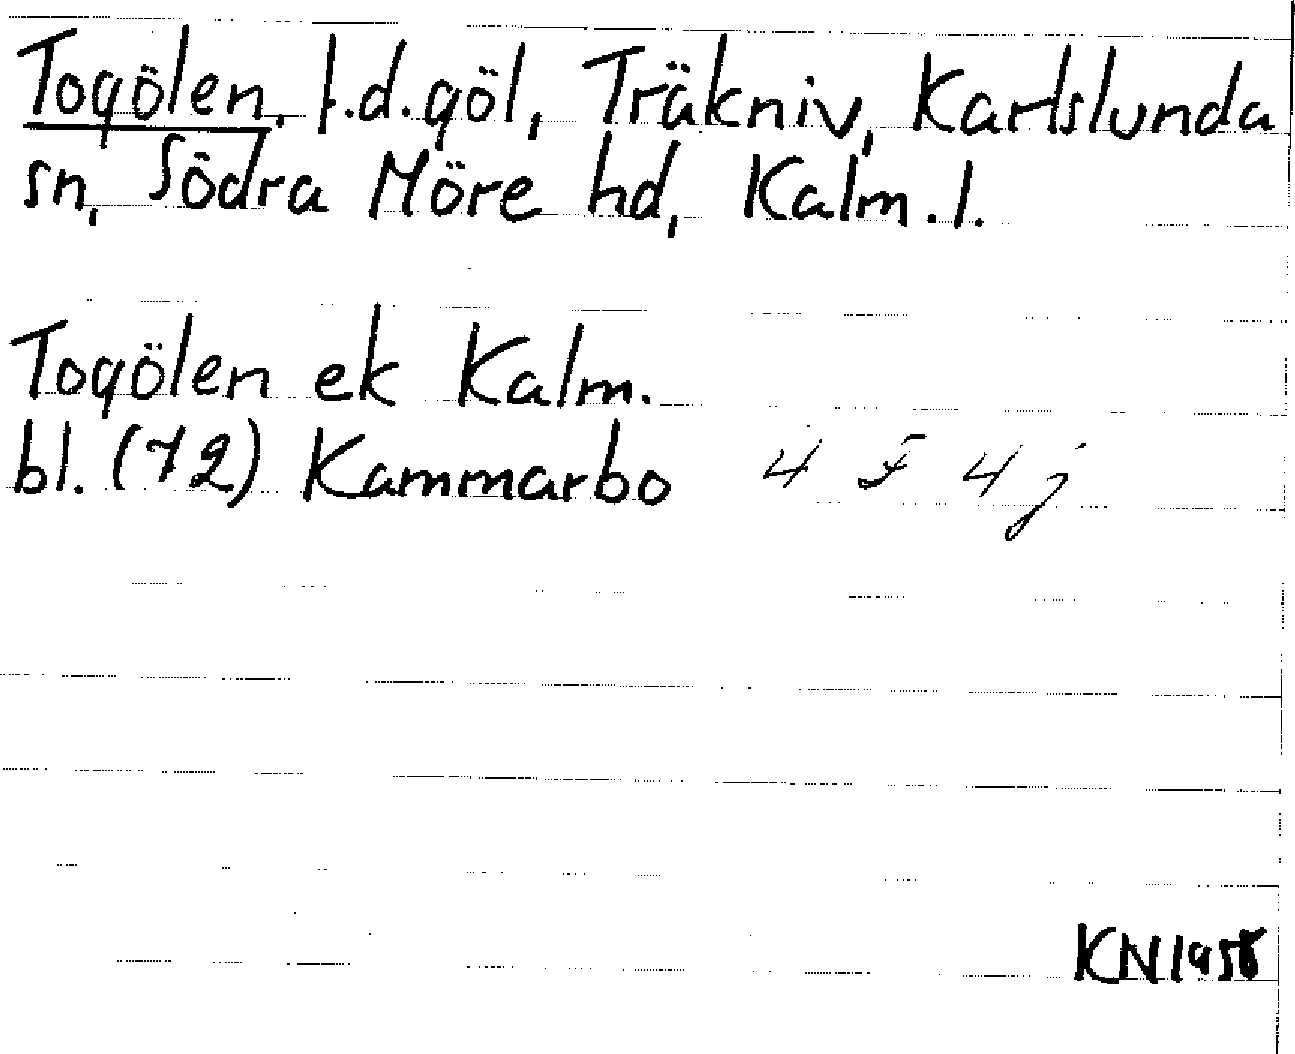 Togölen, f.d. göl, Träkniv, Karlslunda
sn, Södra Möre hd, Kalm. l.
Togölen ek Kalm.
bl. (72) Kammarbo 4 F 4 j
KN 1958